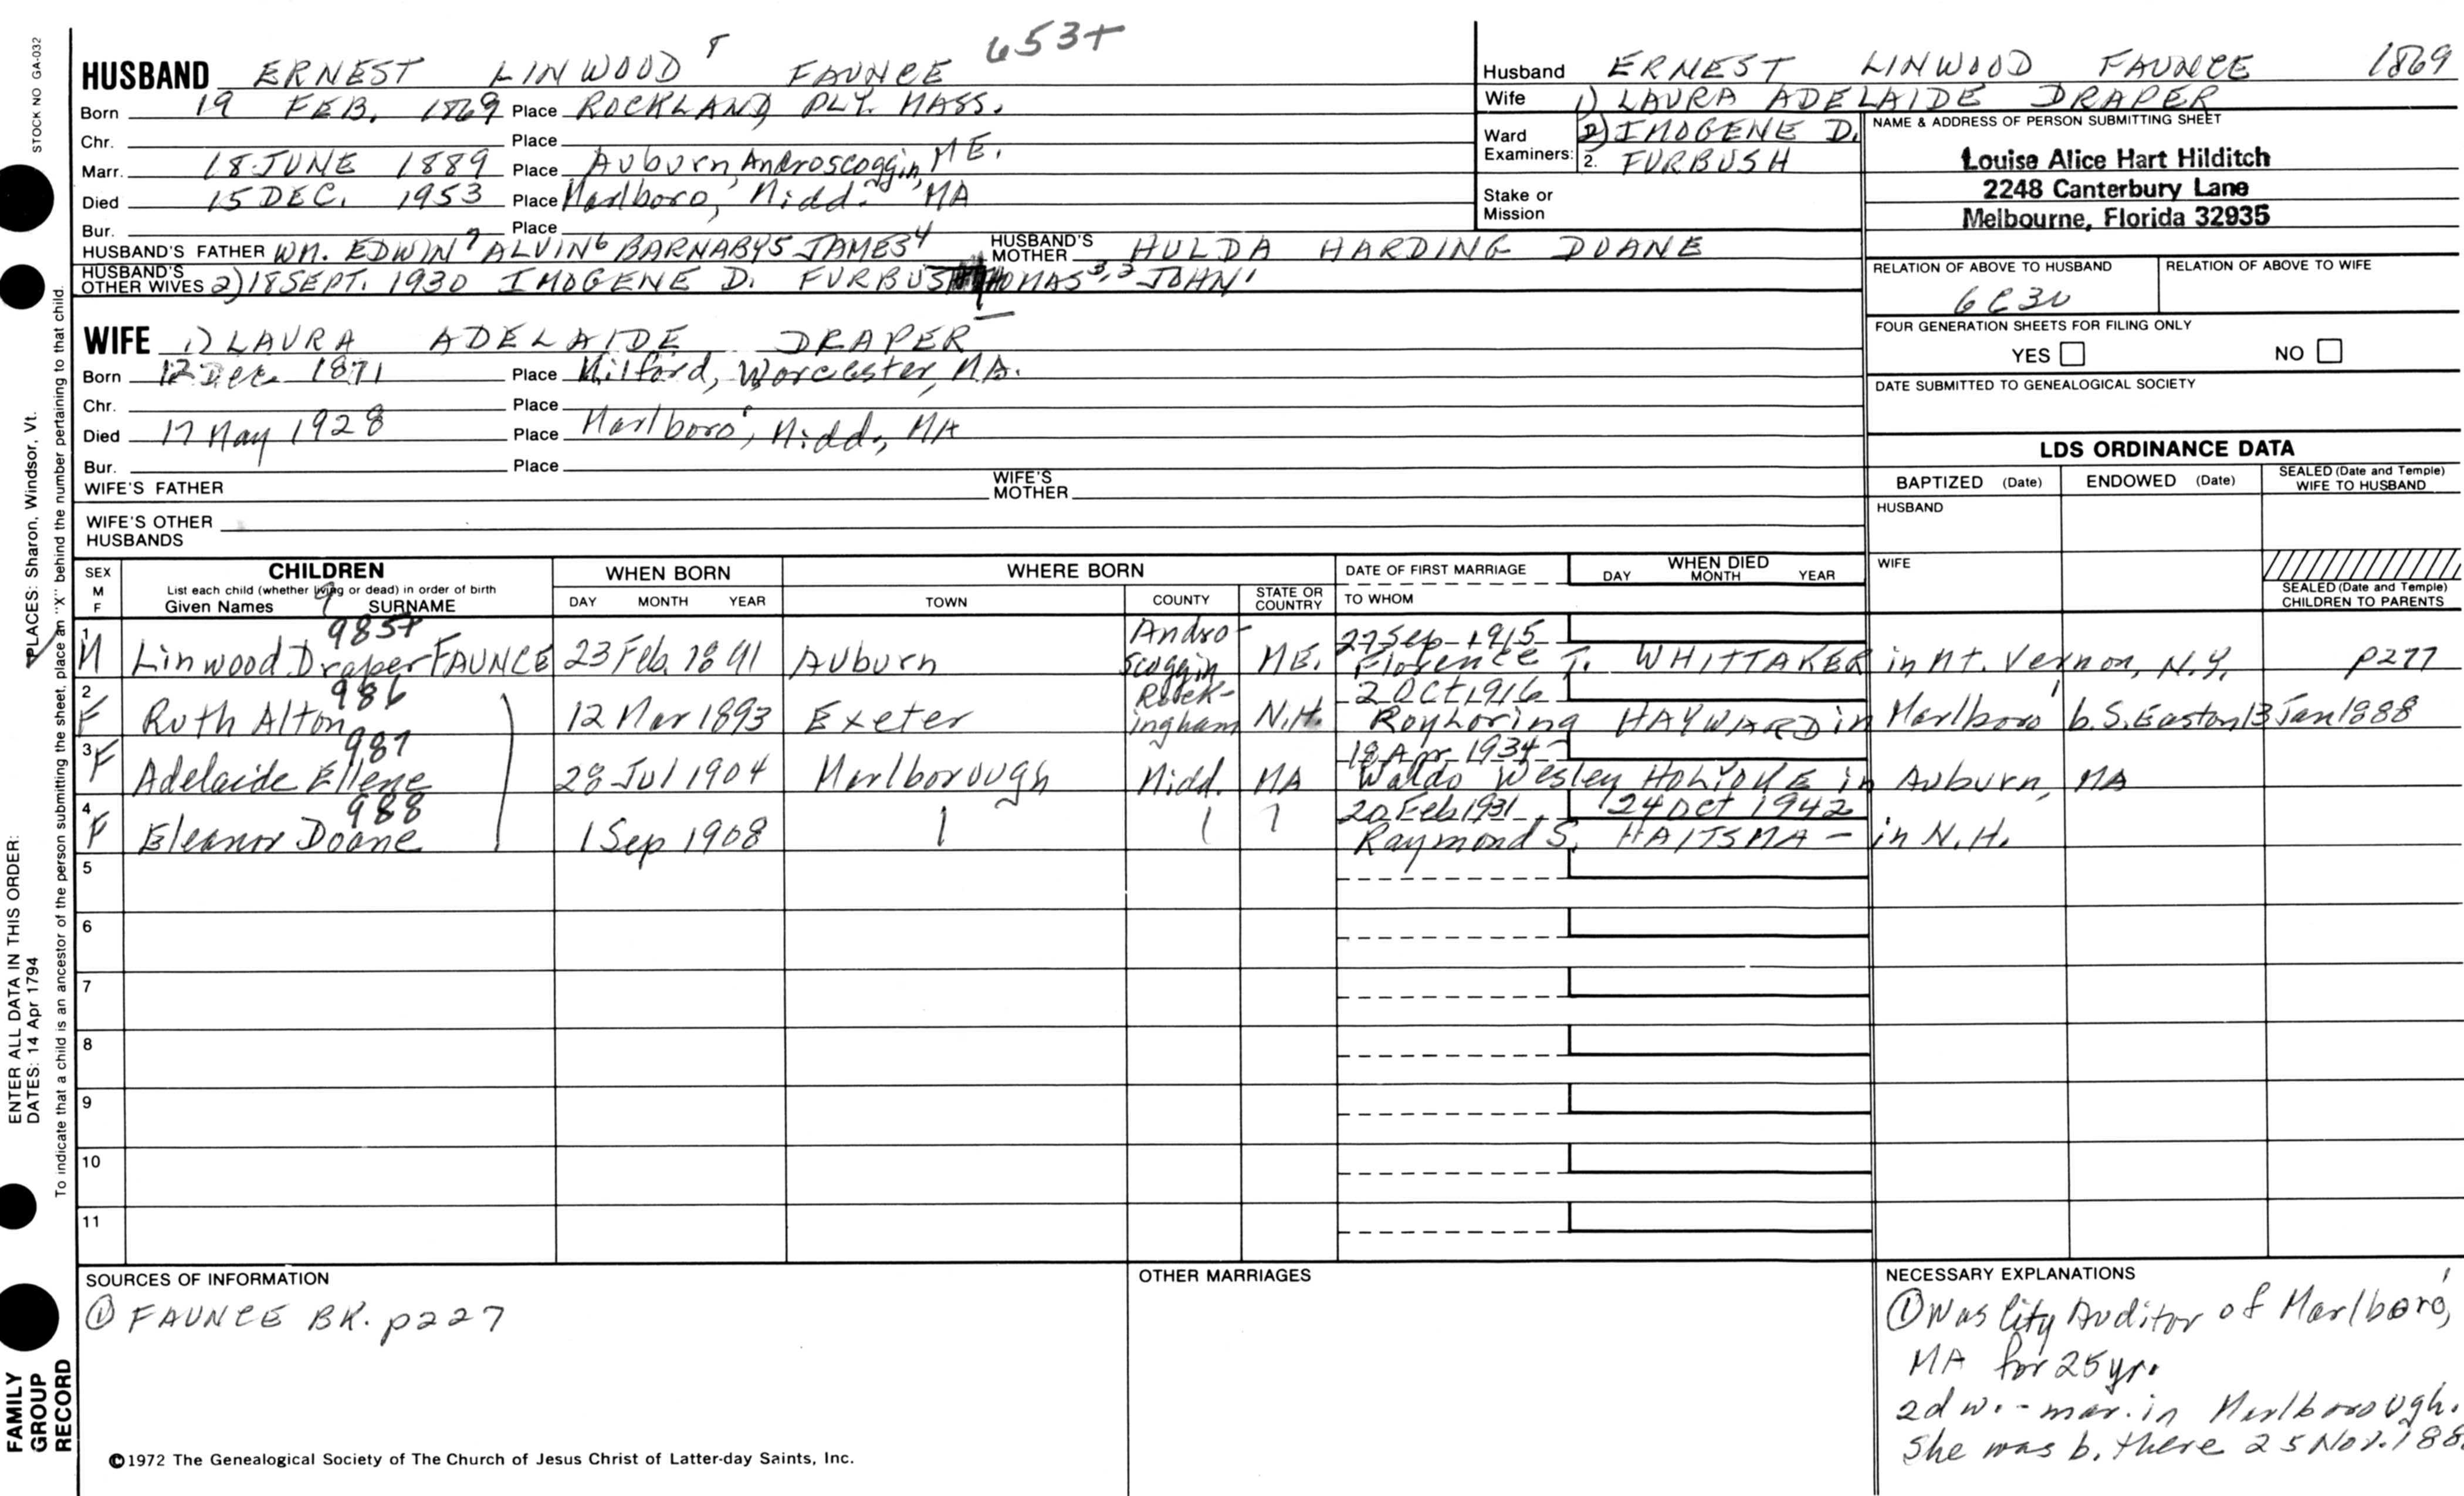 653+
HUSBAND ERNEST LINWOOD FAUNCE
Born 19 FEB. 1869 Place ROCKLAND, PLY. MASS.
Chr. Place
Marr. 18 JUNE 1889 Place Auburn, Androscoggin, ME.
Died 15 DEC. 1953 Place Marlboro, Midd. MA
Bur. Place
HUSBAND'S FATHER WM. EDWIN7 ALVIN6 BARNABY5 JAMES4 HUSBAND'S MOTHER HULDA HARDING DOANE
HUSBAND'S OTHER WIVES 2) 18 SEPT. 1930 IMOGENE D. FURBUSH THOMAS3,2 JOHN1
WIFE 1) LAURA ADELAIDE DRAPER
Born 12 Dec. 1871 Place Milford, Worcester, MA.
Chr. Place
Died 17 May 1928 Place Marlboro, Midd., MA
Bur. Place
WIFE'S FATHER WIFE'S MOTHER
WIFE'S OTHER HUSBANDS
Husband ERNEST LINWOOD FAUNCE 1869
Wife 1) LAURA ADELAIDE DRAPER
Ward Examiners: 2) IMOGENE D.
2. FURBUSH
Stake or Mission
NAME & ADDRESS OF PERSON SUBMITTING SHEET
Louise Alice Hart Hilditch
2248 Canterbury Lane
Melbourne, Florida 32935
RELATION OF ABOVE TO HUSBAND RELATION OF ABOVE TO WIFE
6C3U
FOUR GENERATION SHEETS FOR FILING ONLY
YES NO
DATE SUBMITTED TO GENEALOGICAL SOCIETY
LDS ORDINANCE DATA
BAPTIZED (Date) ENDOWED (Date) SEALED (Date and Temple) WIFE TO HUSBAND
HUSBAND
WIFE
SEALED (Date and Temple) CHILDREN TO PARENTS
SEX M F
CHILDREN
List each child (whether living or dead) in order of birth
Given Names SURNAME
WHEN BORN
DAY MONTH YEAR
WHERE BORN
TOWN COUNTY STATE OR COUNTRY
DATE OF FIRST MARRIAGE
TO WHOM
WHEN DIED
DAY MONTH YEAR
9
985+
1 M Linwood Draper FAUNCE 23 Feb. 1891 Auburn Androscoggin ME. 27 Sep 1915
Florence T. WHITTAKER in Mt. Vernon, N.Y. p277
986
2 F Ruth Alton 12 Mar 1893 Exeter Rockingham N.H. 2 Oct 1916
Roy Loring HAYWARD in Marlboro' b. S. Easton 13 Jan 1888
987
3 F Adelaide Ellene 28 Jul 1904 Marlborough Midd. MA 18 Apr 1934
Waldo Wesley HOLYOKE in Auburn, MA
988
4 F Eleanor Doane 1 Sep 1908 20 Feb 1931 24 Oct 1942
Raymond S. HAITSMA - in N.H.
5
6
7
8
9
10
11
SOURCES OF INFORMATION
① FAUNCE BK. p227
OTHER MARRIAGES
NECESSARY EXPLANATIONS
① Was City Auditor of Marlboro',
MA for 25 yr.
2d w. - mar. in Marlborough.
She was b. there 25 Nov. 188
©1972 The Genealogical Society of The Church of Jesus Christ of Latter-day Saints, Inc.
STOCK NO GA-032
PLACES: Sharon, Windsor, Vt.
ENTER ALL DATA IN THIS ORDER:
DATES: 14 Apr 1794
To indicate that a child is an ancestor of the person submitting the sheet, place an "X" behind the number pertaining to that child.
FAMILY
GROUP
RECORD